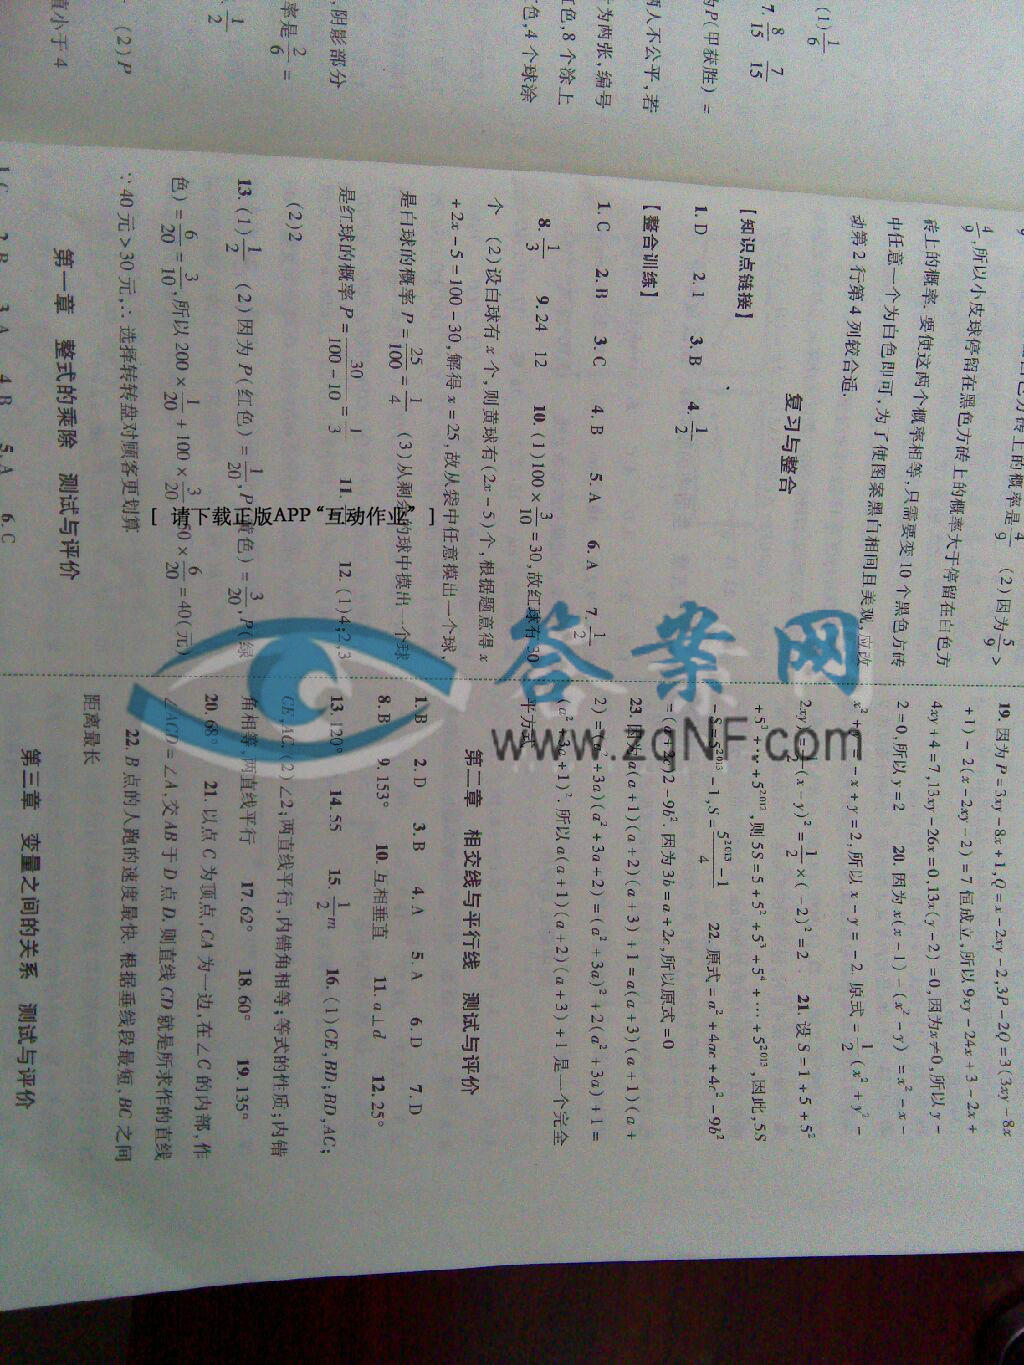 (1)1/6
7. 8/15 7/15
P(甲获胜) =
两人不公平,若
为两张,编号
红色,8 个涂上
色,4 个球涂
,阴影部分
率是2/6 =
1/2
(2)P
值小于 4
4/9,所以小皮球停留在黑色方砖上的概率大于停留在白色方
砖上的概率.要使这两个概率相等,只需要变 10 个黑色方砖
中任意一个为白色即可,为了使图案黑白相间且美观,应改
动第 2 行第 4 列较合适.
复习与整合
【知识点链接】
1. D 2. 1 3. B 4. 1/2
【整合训练】
1. C 2. B 3. C 4. B 5. A 6. A 7. 1/2
8. 1/3 9. 24 12 10. (1)100×3/10=30,故红球有 30
个 (2)设白球有 x 个,则黄球有(2x-5)个,根据题意得 x
+2x-5=100-30,解得 x=25,故从袋中任意摸出一个球,
是白球的概率 P=25/100=1/4 (3)从剩余的球中摸出一个球
是红球的概率 P=30/(100-10)=1/3 11. 12. (1)4;2,3
(2)2
13. (1)1/2 (2)因为 P(红色)=1/20,P(黄色)=3/20,P(绿
色)=6/20=3/10,所以 200×1/20+100×3/20+50×6/20=40(元)
∵40 元>30 元,∴选择转转盘对顾客更划算
第一章 整式的乘除 测试与评价
1. C 2. B 3. A 4. B 5. A 6. C
19. 因为 P=3xy-8x+1,Q=x-2xy-2,3P-2Q=3(3xy-8x
+1)-2(x-2xy-2)=7 恒成立,所以 9xy-24x+3-2x+
4xy+4=7,13xy-26x=0,13x(y-2)=0,因为x≠0,所以 y-
2=0,所以 y=2 20. 因为 x(x-1)-(x²-y)=x²-x-
x²+y=-x+y=2,所以 x-y=-2. 原式=1/2(x²+y²-
2xy)=1/2(x-y)²=1/2×(-2)²=2 21. 设 S=1+5+5²
+5³+…+5²⁰¹²,则 5S=5+5²+5³+5⁴+…+5²⁰¹³,因此,5S
-S=5²⁰¹³-1,S=(5²⁰¹³-1)/4 22. 原式=a²+4ac+4c²-9b²
=(a+2c)2-9b². 因为 3b=a+2c,所以原式=0
23. 因为a(a+1)(a+2)(a+3)+1=a(a+3)(a+1)(a+
2)=(a²+3a)(a²+3a+2)=(a²+3a)²+2(a²+3a)+1=
(a²+3a+1)². 所以 a(a+1)(a+2)(a+3)+1 是一个完全
平方式
第二章 相交线与平行线 测试与评价
1. B 2. D 3. B 4. A 5. A 6. D 7. D
8. B 9. 153° 10. 互相垂直 11. a⊥d 12. 25°
13. 120° 14. 55 15. 1/2m 16. (1)CE,BD;BD,AC;
CE,AC (2)∠2;两直线平行,内错角相等;等式的性质;内错
角相等,两直线平行 17. 62° 18. 60° 19. 135°
20. 68° 21. 以点 C 为顶点,CA 为一边,在∠C 的内部,作
∠ACD=∠A,交 AB 于 D 点 D,则直线 CD 就是所求作的直线
22. B 点的人跑的速度最快. 根据垂线段最短,BC 之间
距离最长
第三章 变量之间的关系 测试与评价
[ 请下载正版APP“互动作业” ]
答案网
www.zqNF.com